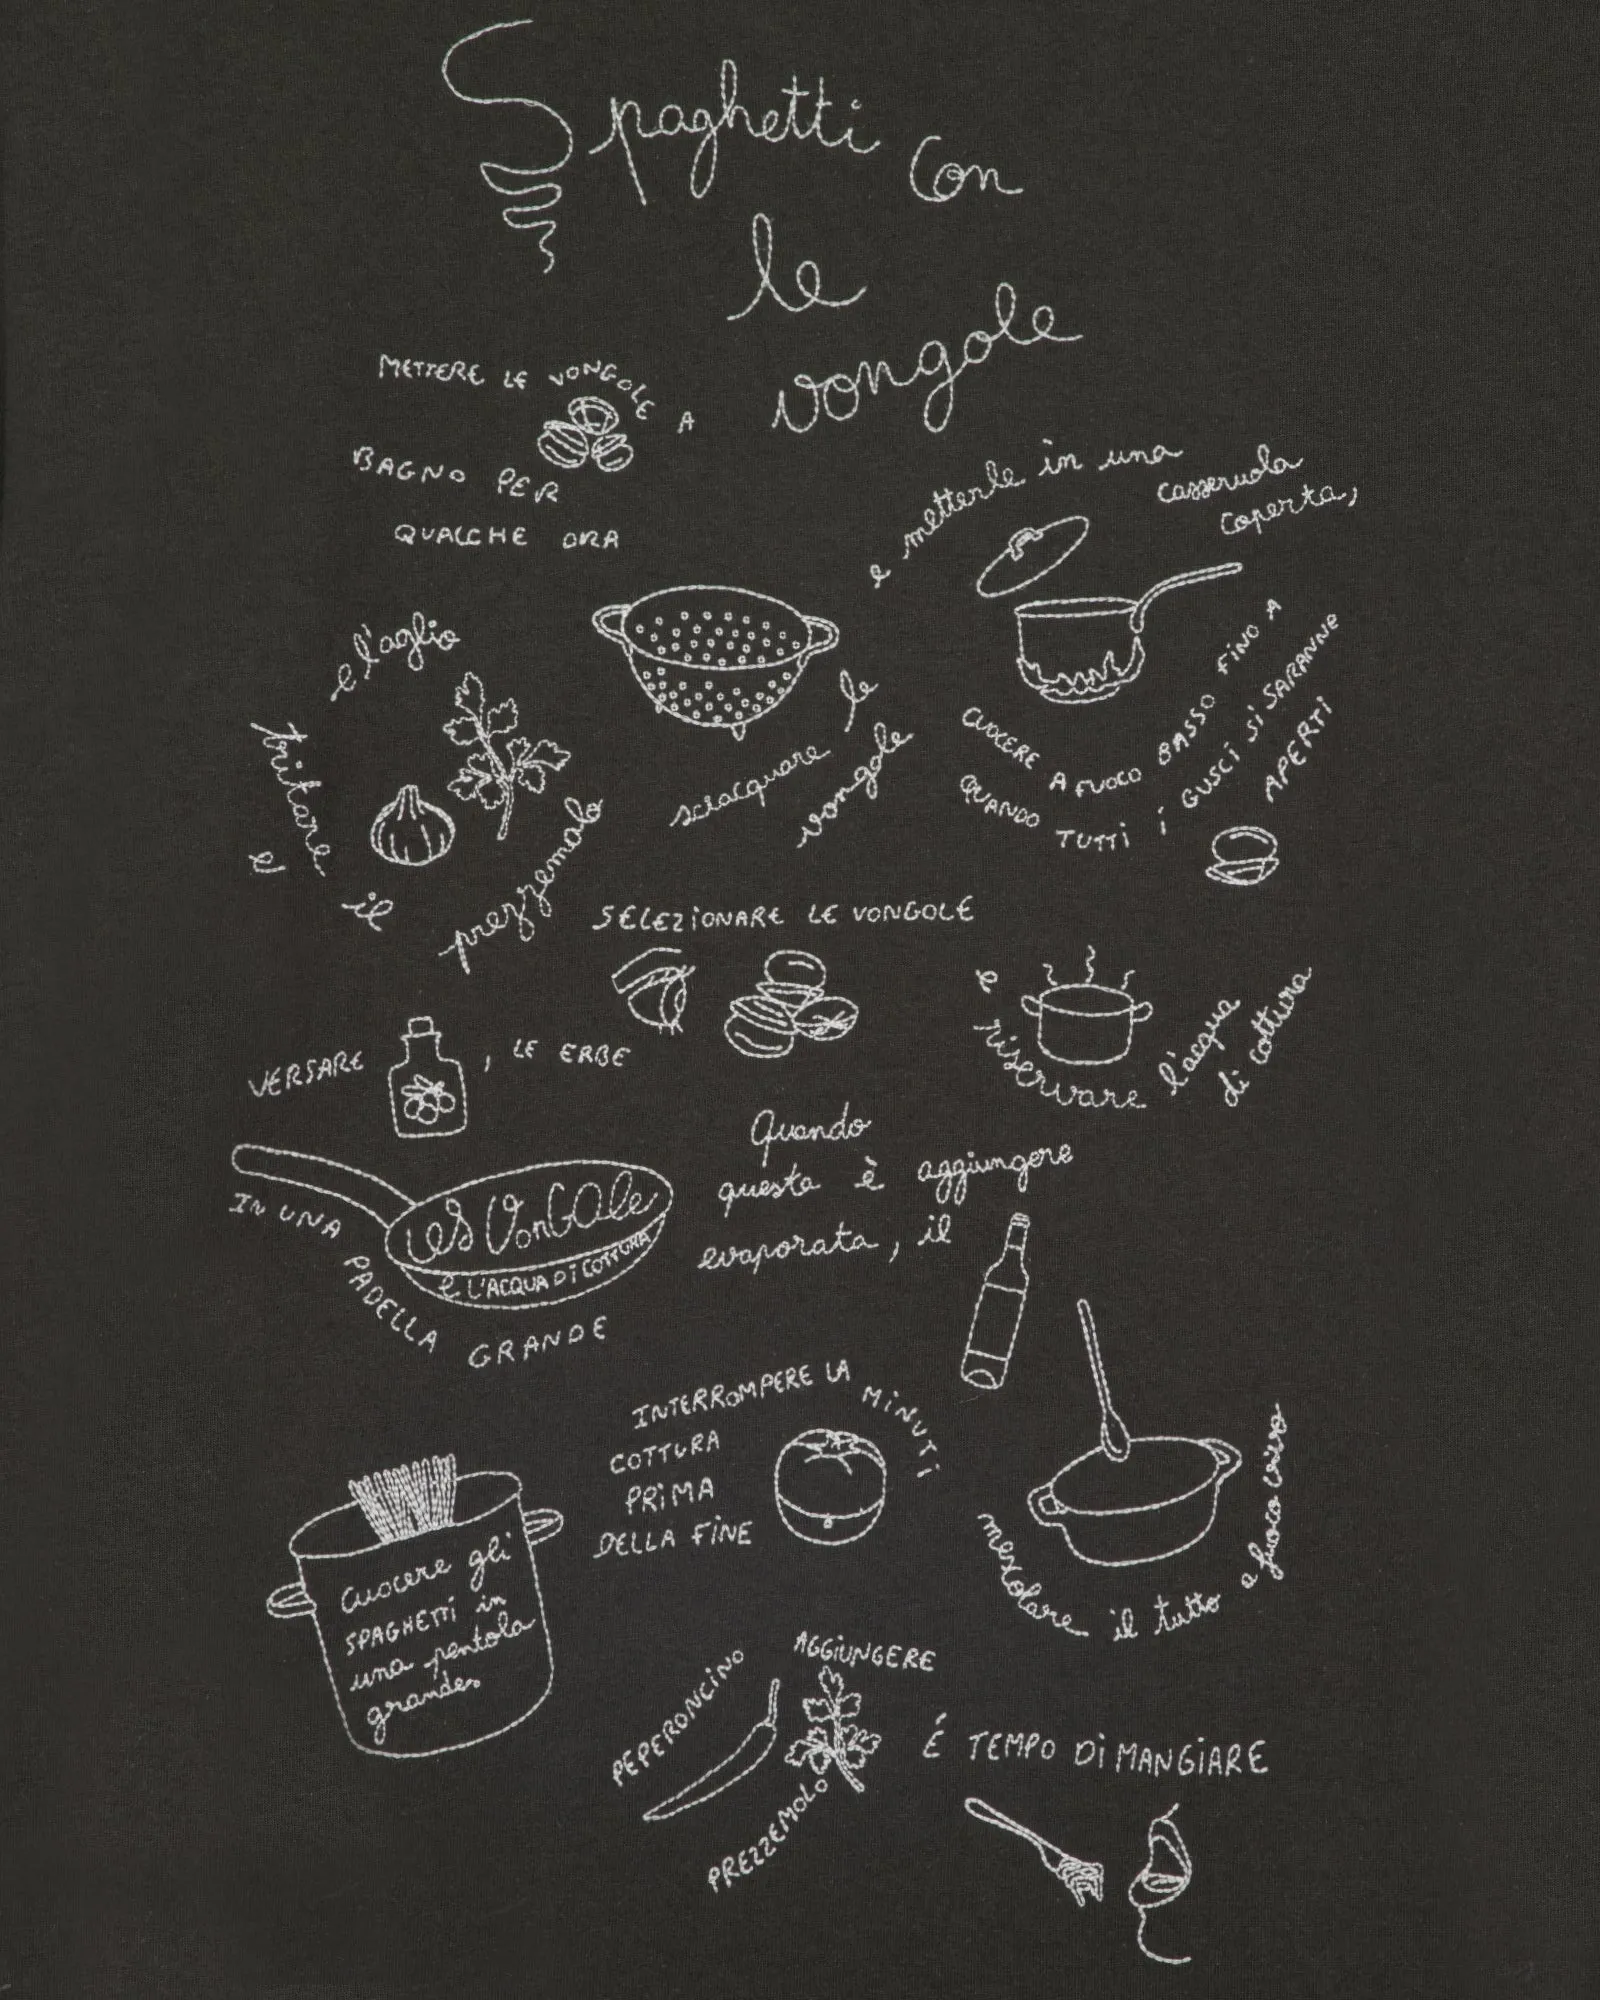 Spaghetti con
le
vongole
METTERE LE VONGOLE A
BAGNO PER
QUALCHE ORA
sciacquare le
vongole
e metterle in una
casseruola
coperta,
CUOCERE A FUOCO BASSO FINO A
QUANDO TUTTI i GUSCi Si SARANNE
APERTi
tritare
e l'aglio
e il
prezzemolo
SELEZIONARE LE VONGOLE
e riservare l'acqua
di cottura
VERSARE , LE ERBE
LES VONGOle
e L'ACQUA Di COTTURA
IN UNA PADELLA GRANDE
Quando
questa è aggiungere
evaporata, il
mescolare il tutto a fuoco vivo
Cuocere gli
SPAGHETTi in
una pentola
grandes
INTERROMPERE LA MiNUTi
COTTURA
PRiMA
DELLA FiNE
AGGiUNGERE
PEPERONCiNO
PREZZEMOLO
É TEMPO Di MANGiARE